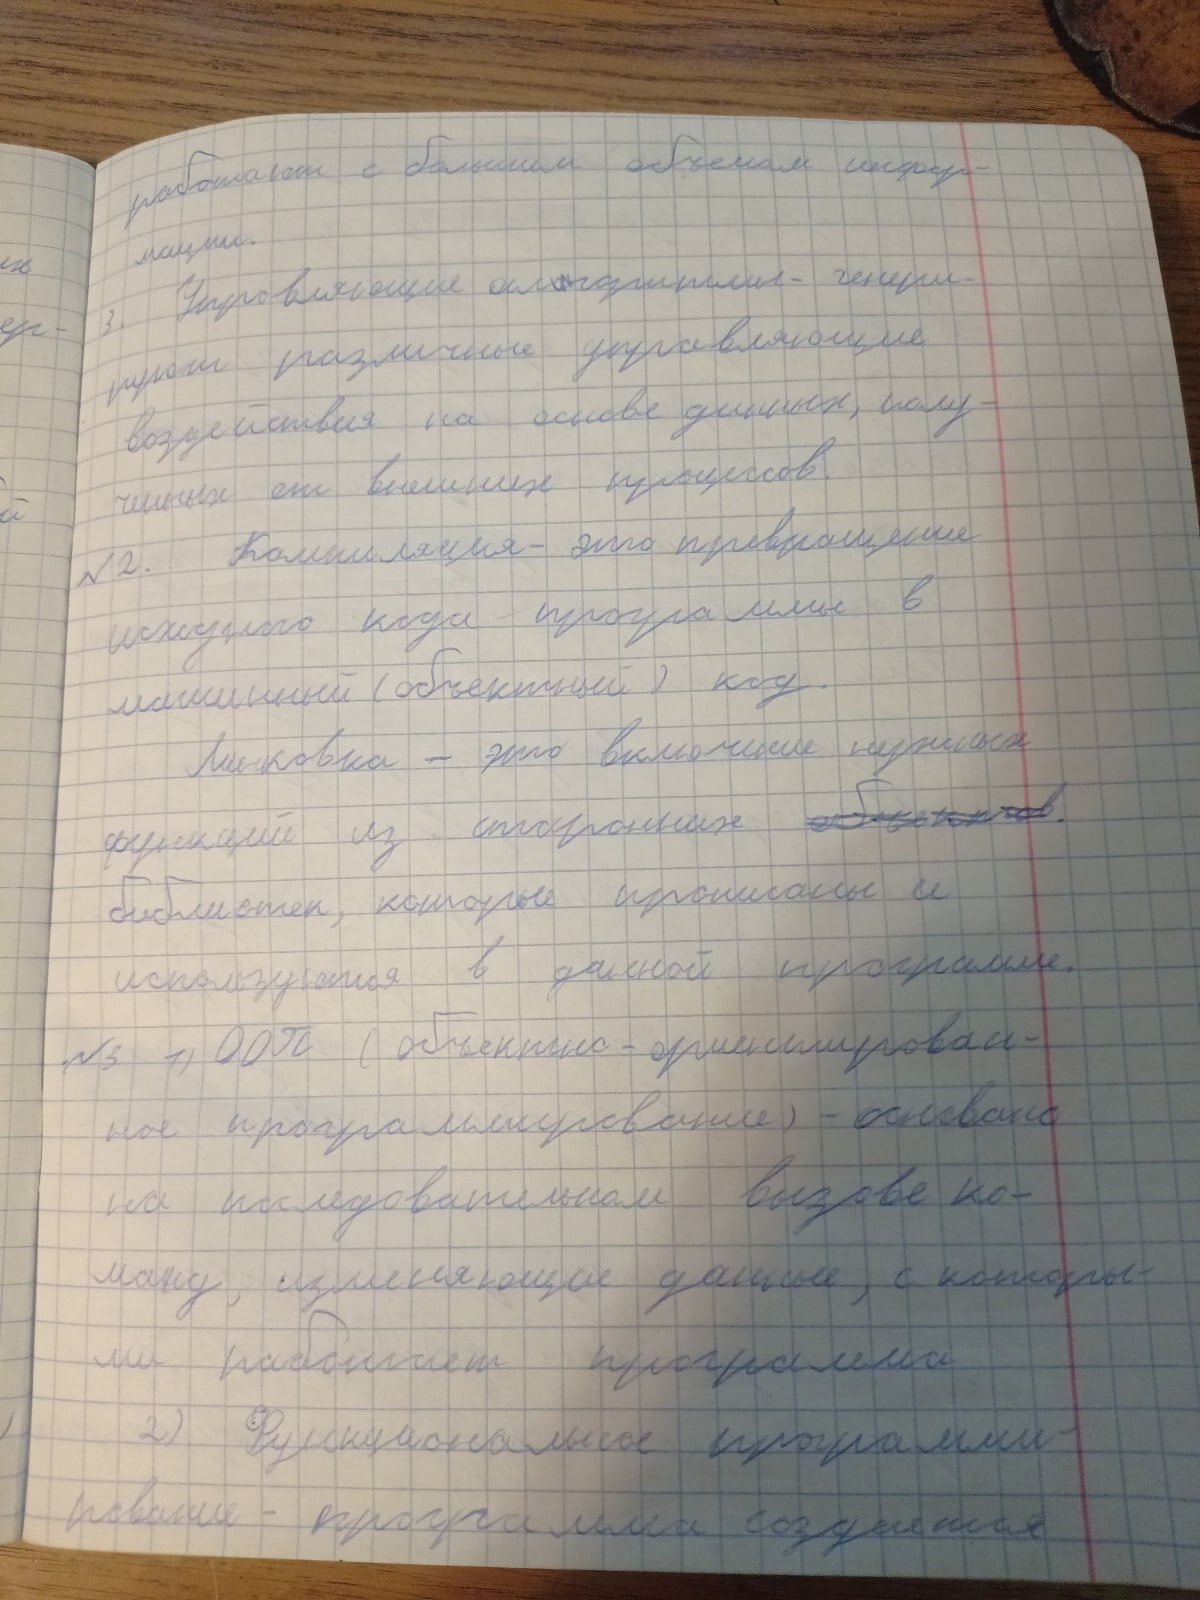 работают с большим объемом инфор-
мации.
3. Управляющие алгоритмы - генери-
руют различные управляющие
воздействия на основе данных, полу-
ченных от внешних процессов.
№2. Компиляция - это превращение
исходного кода программы в
машинный (объектный) код.
Линковка - это включение нужных
функций из сторонних объектов.
библиотек, которые прописаны и
используются в данной программе.
№3 1) ООП (объектно-ориентирован-
ное программирование) - основано
на последовательном вызове ко-
манд, изменяющие данные, с которы-
ми работает программа
2) Функциональное программи-
рование - программа создается